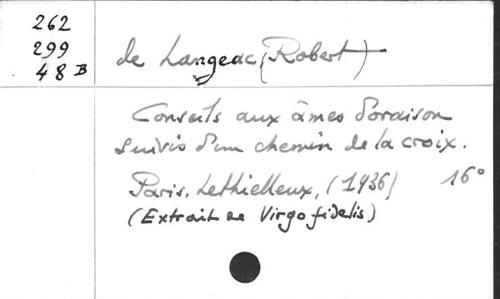 262
299
48 B
de Langeac (Robert)
Conseils aux âmes d'oraison
suivis d'un chemin de la croix.
Paris, Lethielleux, (1936) 16°
(Extrait de Virgo fidelis)